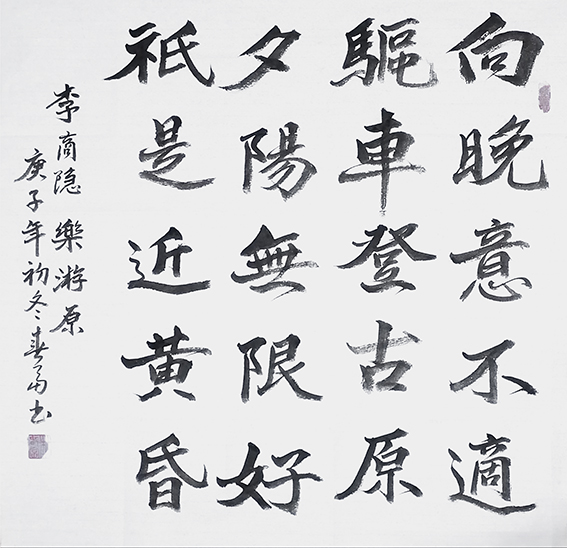 向晚意不適
驅車登古原
夕陽無限好
祇是近黄昏
李商隐 樂游原
庚子年初冬春书